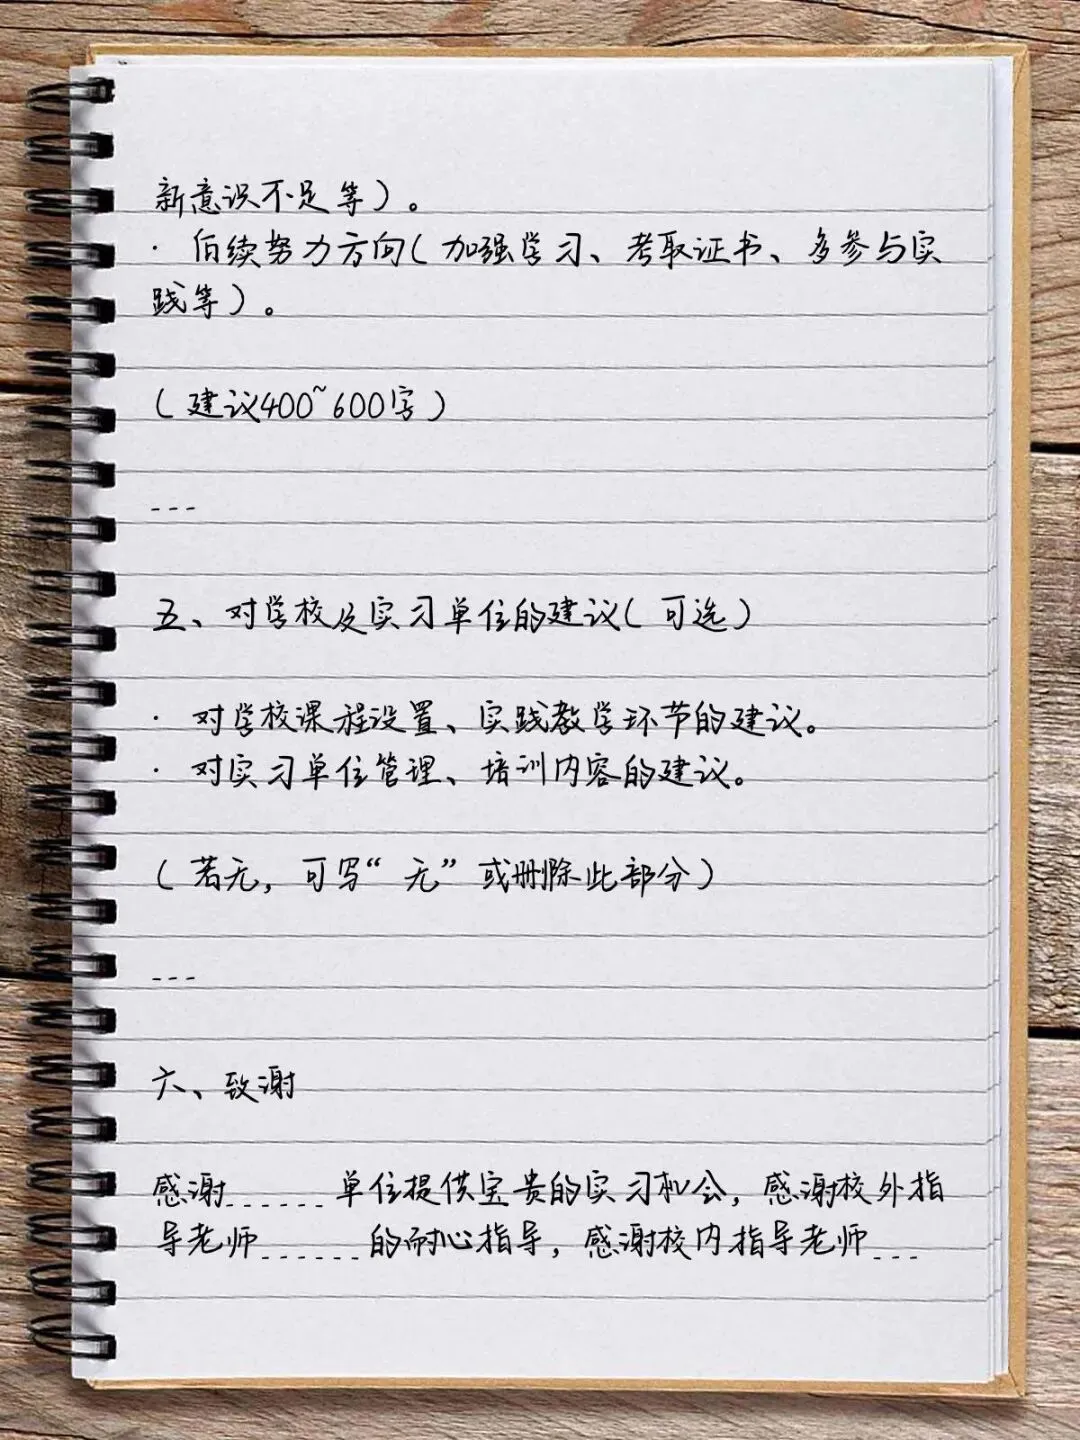 新意识不足等）。
· 后续努力方向（加强学习、考取证书、多参与实
践等）。
（建议400~600字）
---
五、对学校及实习单位的建议（可选）
· 对学校课程设置、实践教学环节的建议。
· 对实习单位管理、培训内容的建议。
（若无，可写“无”或删除此部分）
---
六、致谢
感谢______单位提供宝贵的实习机会，感谢校外指
导老师______的耐心指导，感谢校内指导老师___